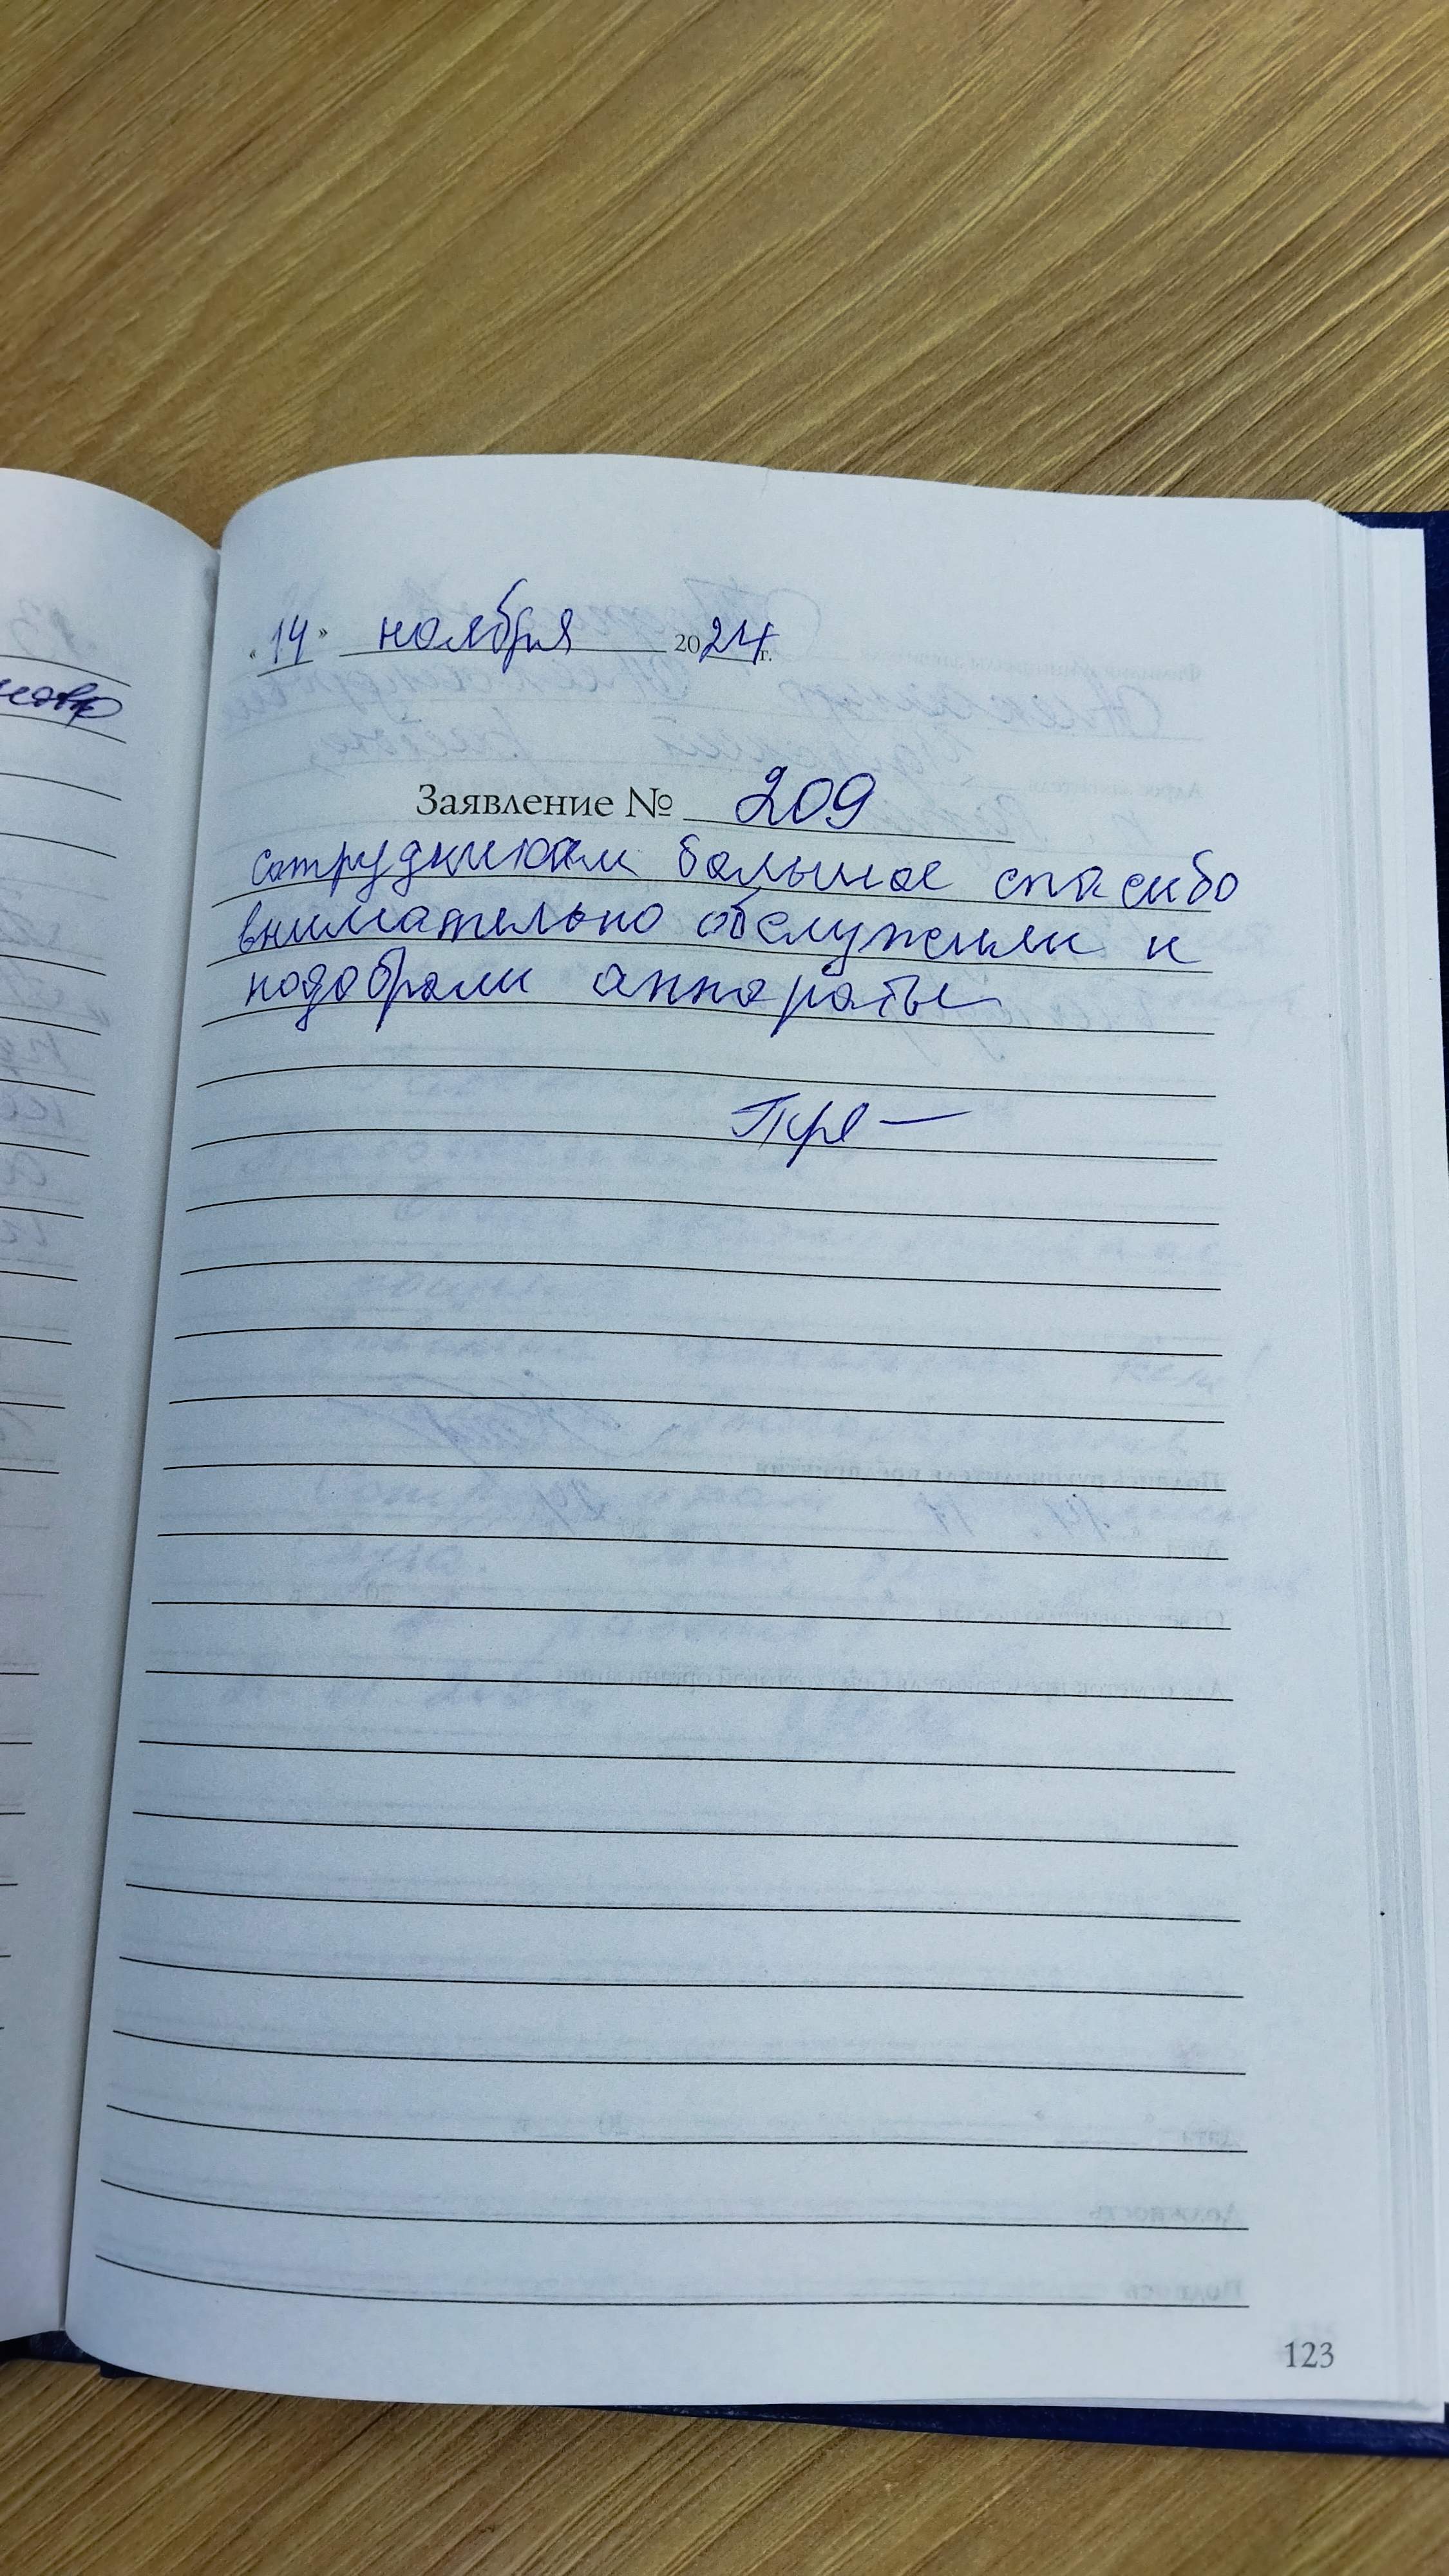 «14» ноября 2024г.
Заявление № 209
сотрудникам большое спасибо
внимательно обслужили и
подобрали аппараты
123